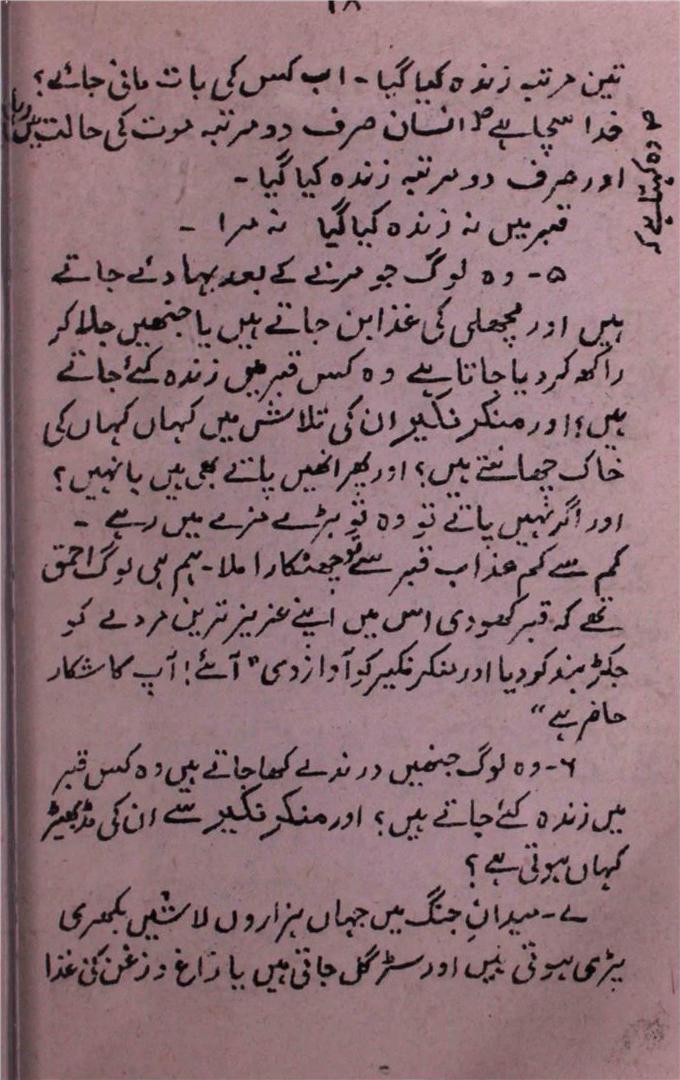 ۱۸
تین مرتبہ زندہ کیا گیا - اب کس کی بات مانی جائے؟
خدا سچا ہے انسان صرف دو مرتبہ موت کی حالت میں رہا
وہ کہتا ہے کہ
اور صرف دو مرتبہ زندہ کیا گیا -
قبر میں نہ زندہ کیا گیا نہ مرا -
۵- وہ لوگ جو مرنے کے بعد بہا دئے جاتے
ہیں اور مچھلی کی غذا بن جاتے ہیں یا جنھیں جلا کر
راکھ کر دیا جاتا ہے وہ کس قبر میں زندہ کئے جاتے
ہیں؟ اور منکر نکیر ان کی تلاش میں کہاں کہاں کی
خاک چھانتے ہیں؟ اور پھر انھیں پاتے بھی ہیں یا نہیں؟
اور اگر نہیں پاتے تو وہ تو بڑے مزے میں رہے -
کم سے کم عذاب قبر سے تو چھٹکارا ملا - ہم ہی لوگ احمق
تھے کہ قبر کھودی اس میں اپنے عزیز ترین مردے کو
جکڑ بند کر دیا اور منکر نکیر کو آواز دی "آئے! آپ کا شکار
حاضر ہے"
۶- وہ لوگ جنھیں درندے کھا جاتے ہیں وہ کس قبر
میں زندہ کئے جاتے ہیں؟ اور منکر نکیر سے ان کی مڈبھیڑ
کہاں ہوتی ہے؟
۷- میدانِ جنگ میں جہاں ہزاروں لاشیں بکھری
پڑی ہوتی ہیں اور سڑ گل جاتی ہیں یا زاغ و زغن کی غذا